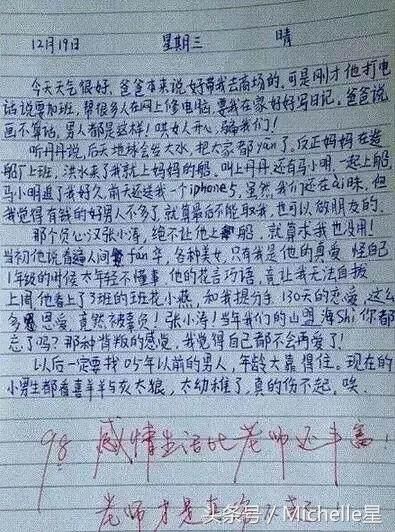 12月19日 星期三 晴
今天天气很好,爸爸本来说好带我去商场的,可是刚才他打电
话说要加班,帮很多人在网上修电脑,要我在家好好写日记,爸爸说
画不算话,男人都是这样!哄女人开心,骗我们!
听丹丹说,后天地球会发大水,把大家都yan了,反正妈妈在造
船厂上班,洪水来了我就上妈妈的船,叫上丹丹,还有马小明,一起上船
马小明追了我好久,前天还送我一个iphone5,虽然我们还在ai昧,但
我觉得有钱的好男人不多了,就算最后不能娶我,也可以做朋友的。
那个负心汉张小涛,绝不让他上船,就算求我也没用!
当初他说看遍人间fan华,各种美女,只有我是他的真爱,怪自己
1年级的时候太年轻不懂事,他的花言巧语,竟让我无法自拔
上周他看上了3班的班花小燕,和我提分手,130天的恋爱,这么
多恩爱,竟然被辜负!张小涛!当年我们的山盟海Shi你都
忘了吗?那种背叛的感觉,我觉得自己都不会再爱了!
以后一定要找05年以前的男人,年龄大靠得住。现在的
小男生都看喜羊羊与灰太狼,太幼稚了,真的伤不起,唉
98 感情生活比老师还丰富!
老师才是真
头条号 / Michelle星